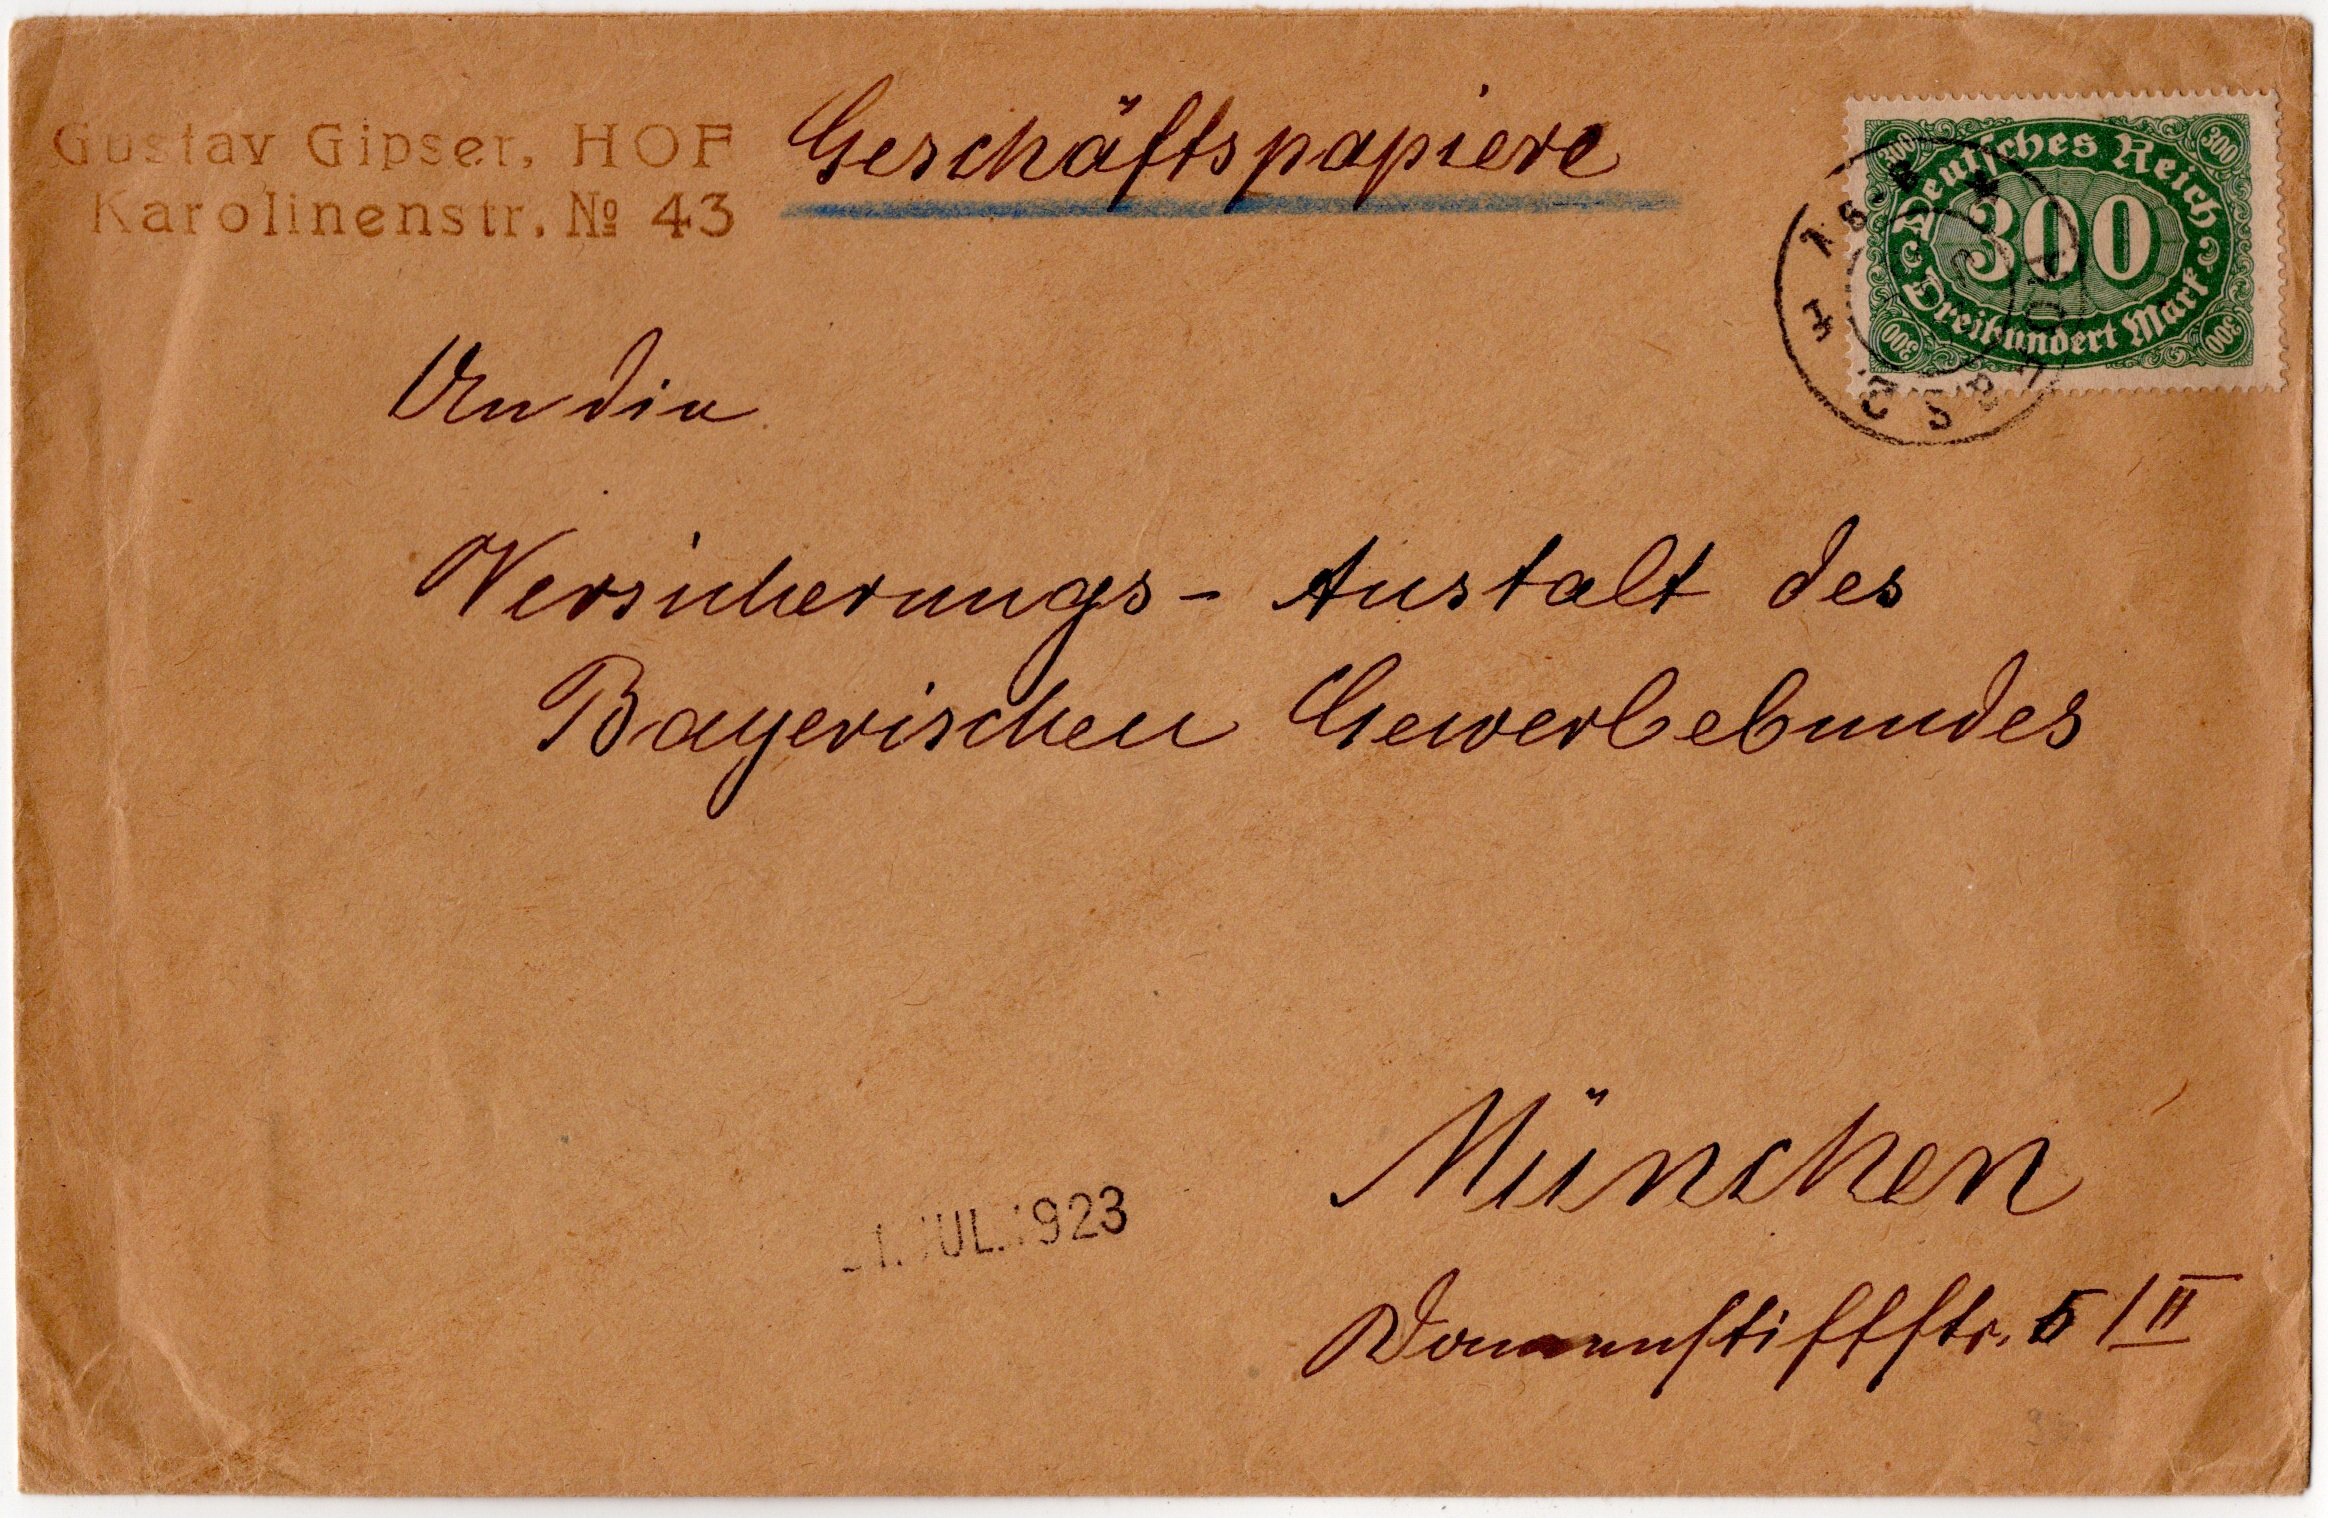 Gustav Gipser, HOF
Karolinenstr. № 43
Geschäftspapiere
Deutsches Reich
300
300
300
Dreihundert Mark
300
300
An die
Versicherungs- Anstalt des
Bayerischen Gewerbebundes
München
1. JUL. 1923
Damenstiftstr. 5 / II